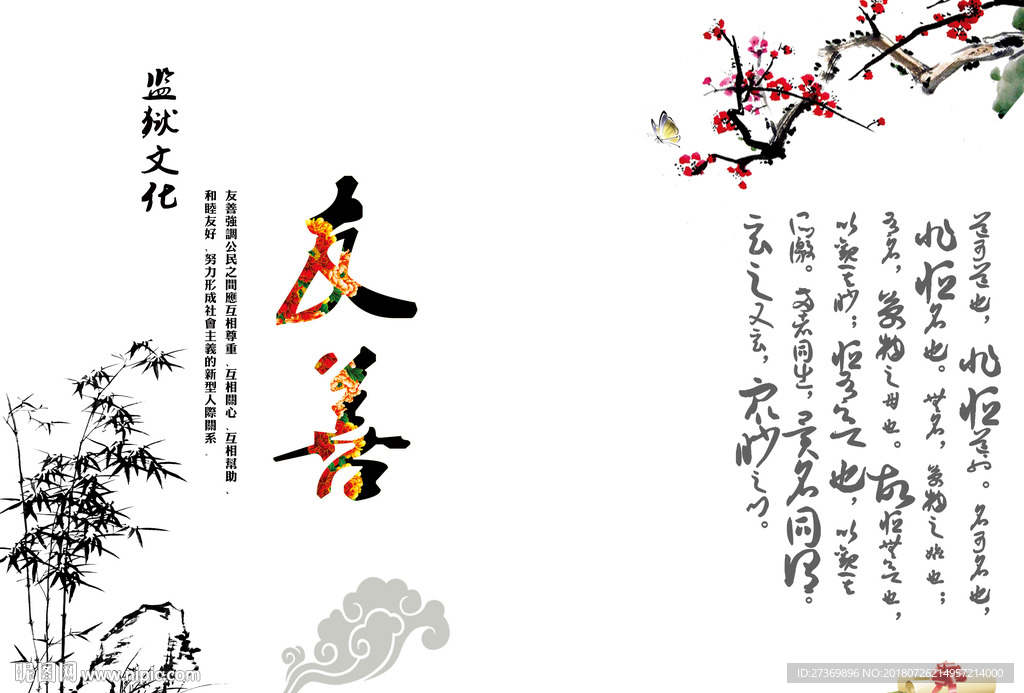 道可道也，非恒道也。名可名也，
非恒名也。無名，萬物之始也；
有名，萬物之母也。故恒無欲也，
以觀其眇；恒有欲也，以觀其
所徼。兩者同出，異名同謂。
玄之又玄，眾眇之門。
友善
友善強調公民之間應互相尊重、互相關心、互相幫助、
和睦友好、努力形成社會主義的新型人際關系。
监狱文化
昵图网 www.nipic.com
ID:27369896 NO:20180726214957214000